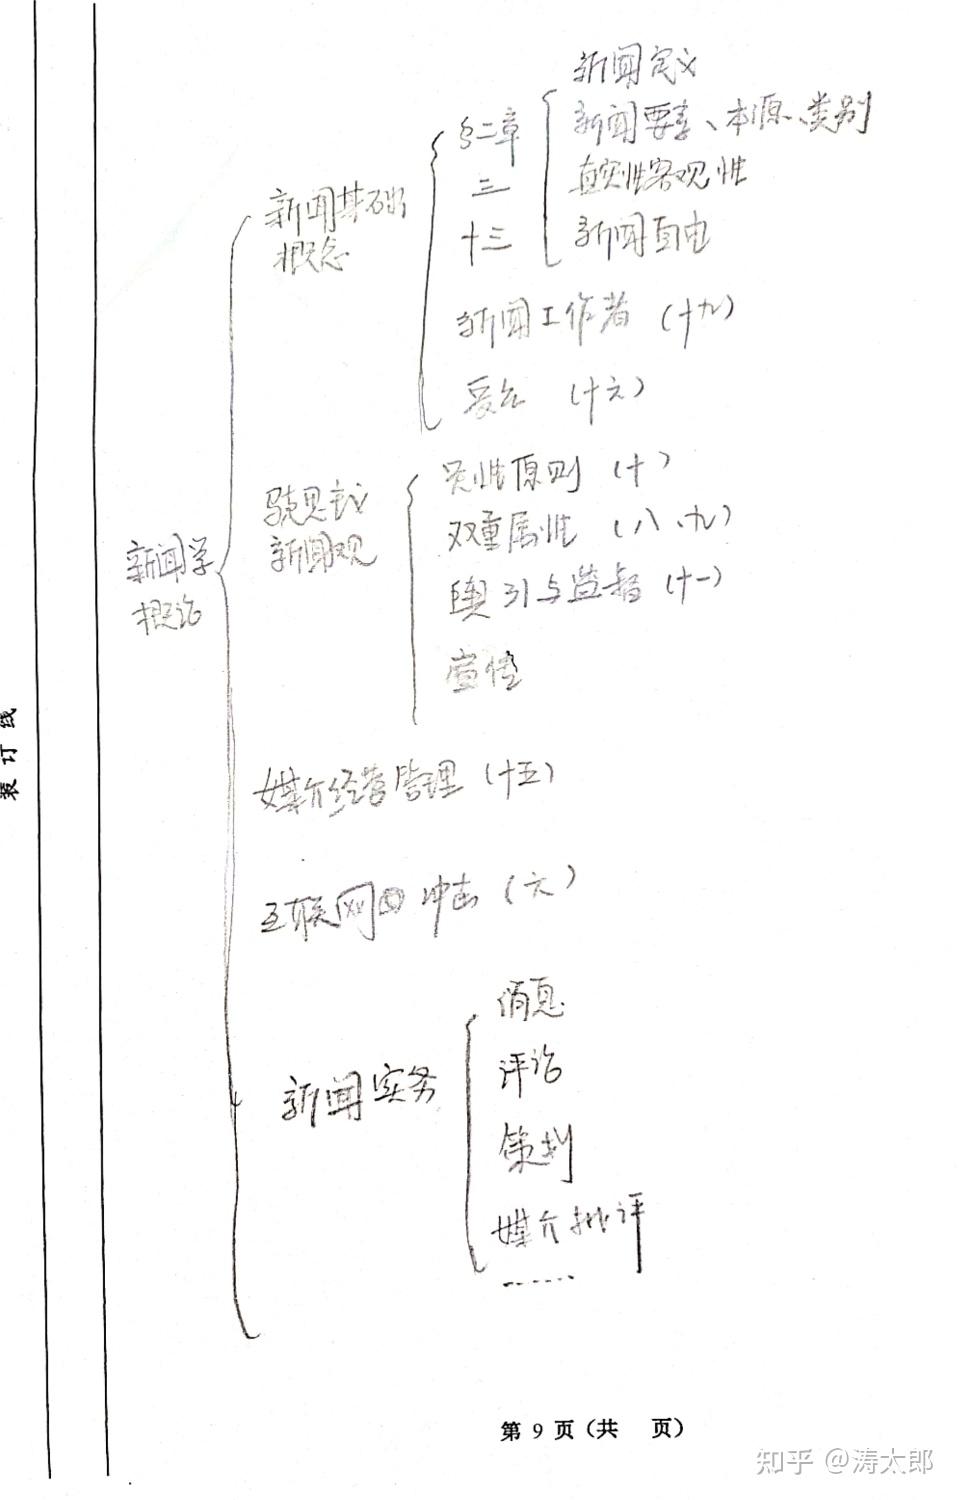 新闻定义
第二章
新闻要素、本源、类别
三
真实性客观性
新闻基础
概念
十三
新闻自由
新闻工作者（十九）
受众（十六）
马克思主义
新闻观
党性原则（十）
双重属性（八、九）
舆引与监督（十一）
宣传
新闻学
概论
媒介经营管理（十五）
互联网 冲击（六）
新闻实务
消息
评论
策划
媒介批评
......
装订线
第 9 页（共 页）
知乎 @涛太郎